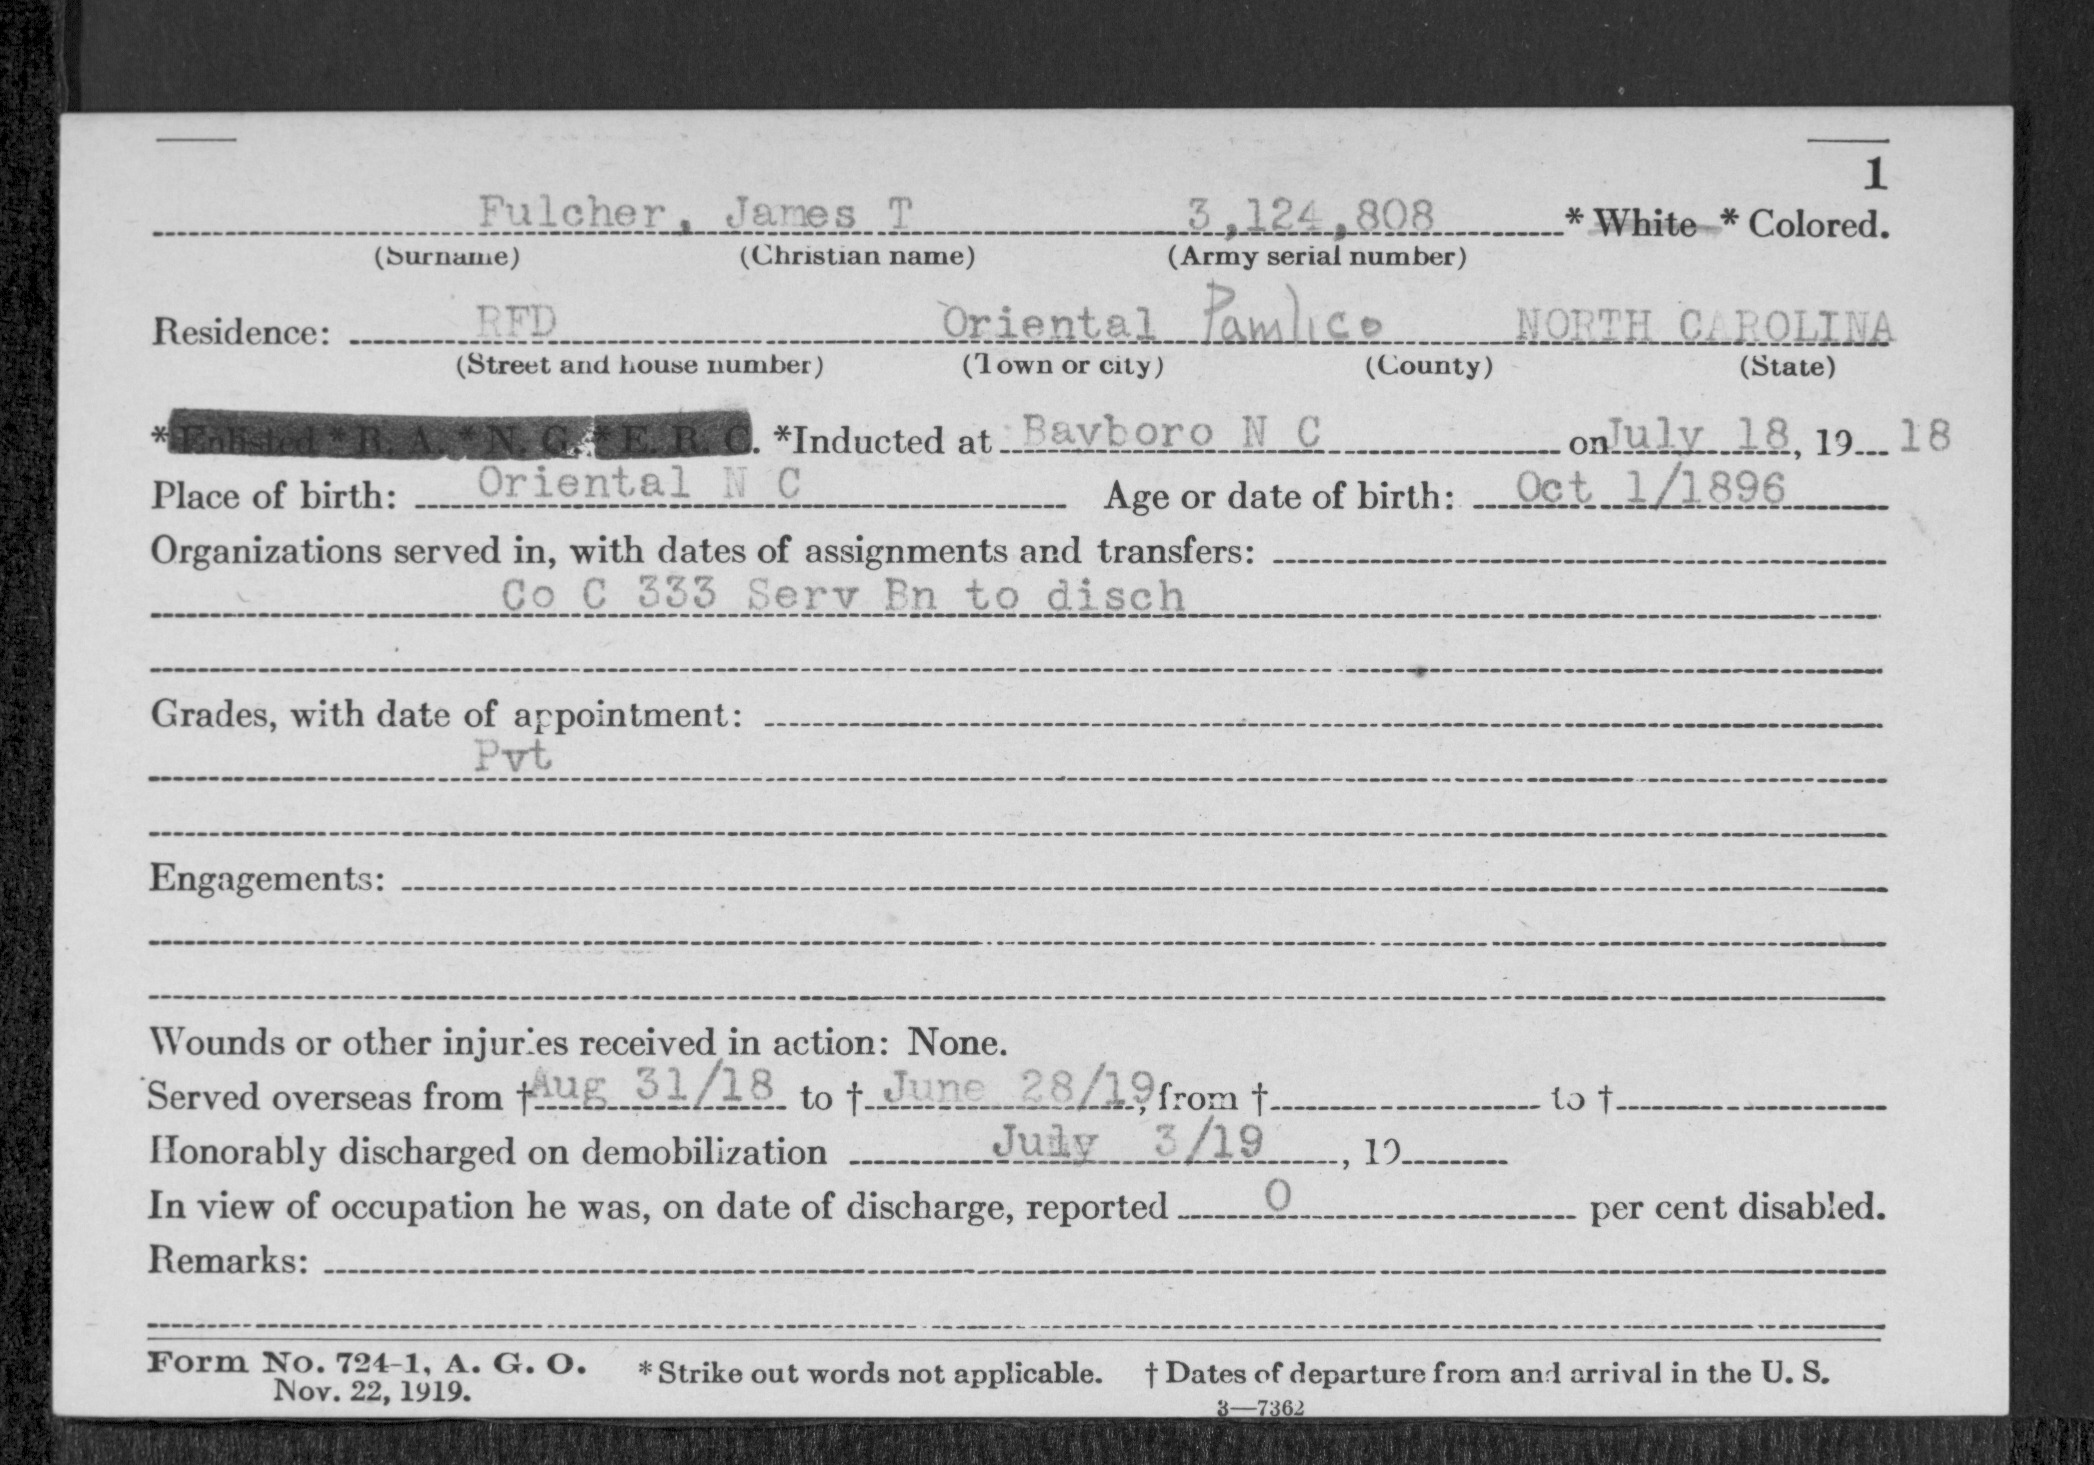 1
Fulcher, James T 3,124,808 * White * Colored.
(Surname) (Christian name) (Army serial number)
Residence: RFD Oriental Pamlico NORTH CAROLINA
(Street and house number) (Town or city) (County) (State)
* Enlisted * R. A. * N. G. * E. R. C. *Inducted at Bayboro N C on July 18, 19 18
Place of birth: Oriental N C Age or date of birth: Oct 1/1896
Organizations served in, with dates of assignments and transfers:
Co C 333 Serv Bn to disch
Grades, with date of appointment:
Pvt
Engagements:
Wounds or other injuries received in action: None.
Served overseas from † Aug 31/18 to † June 28/19, from † to †
Honorably discharged on demobilization July 3/19, 19
In view of occupation he was, on date of discharge, reported 0 per cent disabled.
Remarks:
Form No. 724-1, A. G. O. * Strike out words not applicable. † Dates of departure from and arrival in the U. S.
Nov. 22, 1919.
3—7362